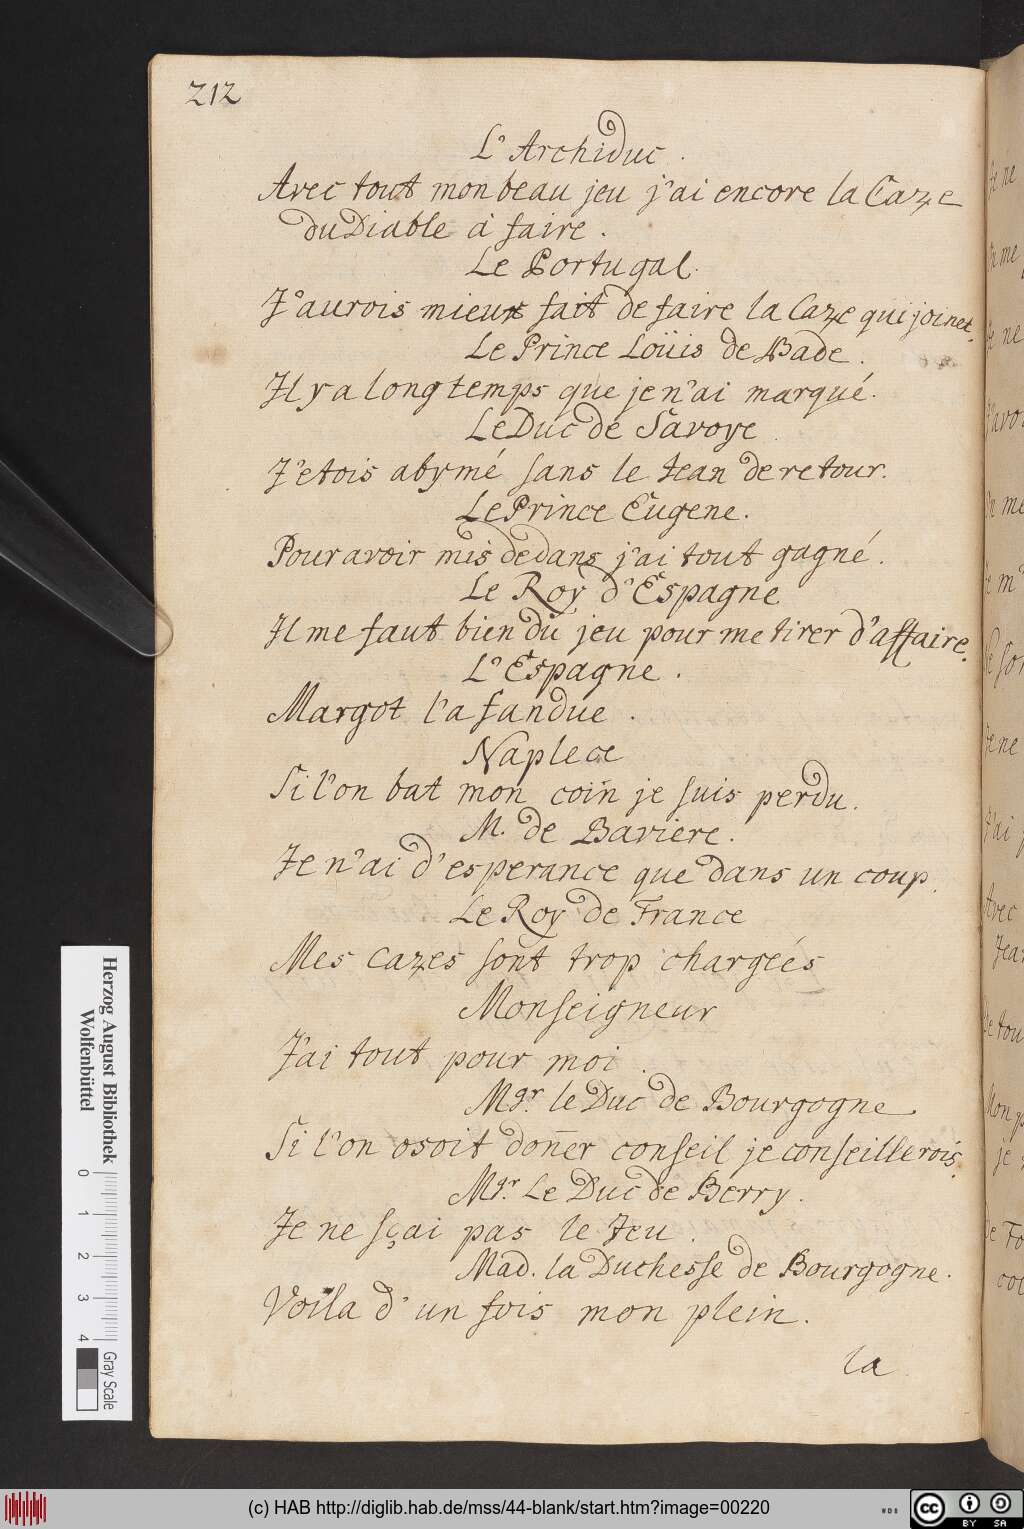 212
L'Archiduc.
Avec tout mon beau jeu j'ai encore la Caze
du Diable à faire.
Le Portugal.
J'aurois mieux fait de faire la Caze qui joinet.
Le Prince Loüis de Bade.
Il y a long temps que je n'ai marqué.
Le Duc de Savoye
J'etois abymé sans le Jean de retour.
Le Prince Eugene.
Pour avoir mis dedans j'ai tout gagné.
Le Roy d'Espagne
Il me faut bien du jeu pour me tirer d'affaire.
L'Espagne.
Margot l'a fandue.
Naplece
Si l'on bat mon coin je suis perdu.
M. de Baviere.
Je n'ai d'esperance que dans un coup.
Le Roy de France
Mes cazes sont trop chargées
Monseigneur
J'ai tout pour moi.
Mgr. le Duc de Bourgogne
Si l'on osoit doñer conseil je conseillerois.
Mgr. Le Duc de Berry.
Je ne sçai pas le Jeu.
Mad. la Duchesse de Bourgogne.
Voila d'un fois mon plein.
la
Herzog August Bibliothek
Wolfenbüttel
0 1 2 3 4
Gray Scale
(c) HAB http://diglib.hab.de/mss/44-blank/start.htm?image=00220
WDB
cc
BY SA